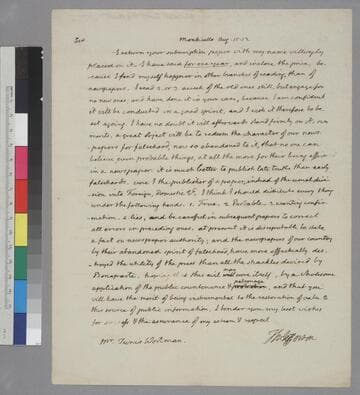 Sir Monticello Aug. 15. 13
I return your subscription paper with my name willingly
placed on it. I have said for one year, and inclose the price, be-
cause I find myself happier in other branches of reading, than of
newspapers. I read 2. or 3 a week of the old ones still, but engage for
no new ones, and have done it in your case, because I am confident
it will be conducted in a good spirit, and I wish it therefore to be
set agoing. I have no doubt it will afterwards stand firmly on it's own
merits. a great object will be to redeem the character of our news-
papers for falsehood, now so abandoned to it, that no one can
believe even probable things, at all the more for their being affirmed
in a newspaper. it is much better to publish late truths than early
falsehoods. were I the publisher of a paper, instead of the usual divi-
sion into Foreign, Domestic &c. I think I should distribute every thing
under the following heads. 1. True. 2. Probable. 3. wanting confir-
mation. 4. lies, and be careful in subsequent papers to correct
all errors in preceding ones. at present it is disreputable to state
a fact on newspaper authority; and the newspapers of our country
by their abandoned spirit of falsehood, have more effectually des-
troyed the utility of the press than all the shackles devised by
Bonaparte. that this evil may cure itself, by a wholesome
application of the public countenance & patronage, and that you
will have the merit of being instrumental to the restoration of due to
this source of public information, I tender you my best wishes
for success & the assurance of my esteem & respect.
Th: Jefferson
Mr. Tunis Wortman.